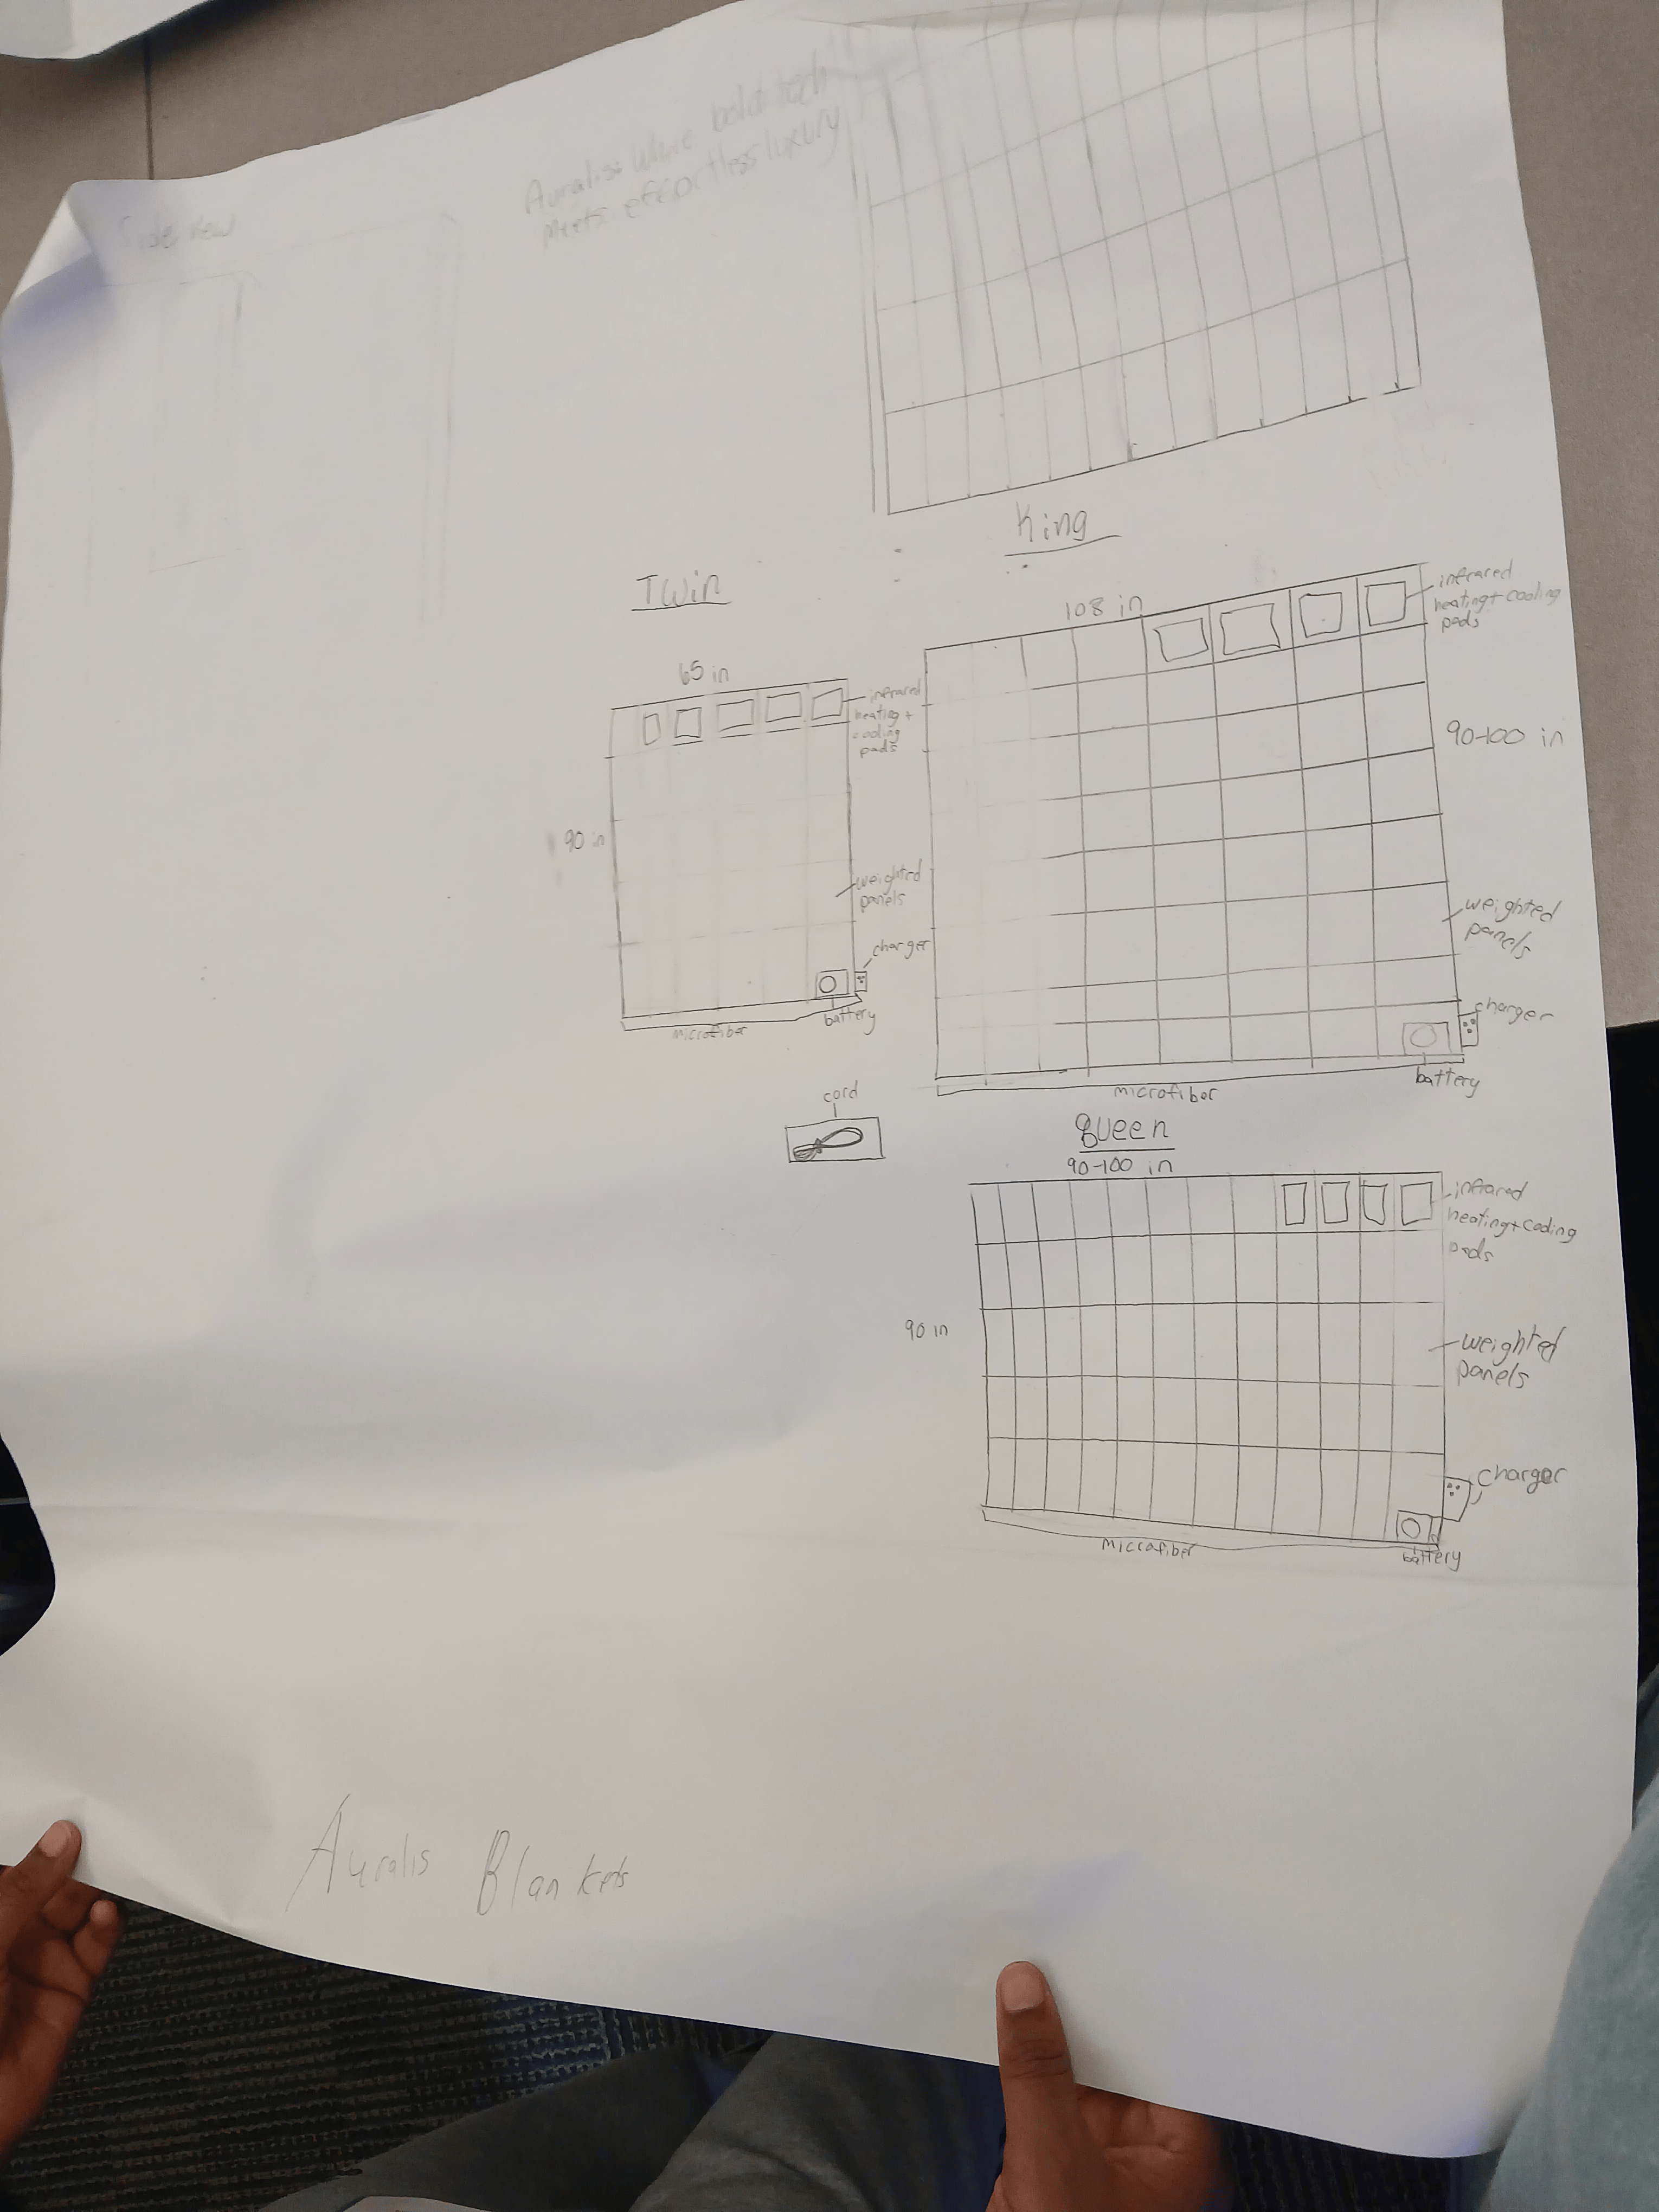 Side view
Auralis: Where bold tech
meets effortless luxury
King
Twin
108 in
infrared
heating + cooling
pads
65 in
infrared
heating +
cooling
pads
90-100 in
90 in
weighted
panels
weighted
panels
charger
charger
battery
microfiber
battery
microfiber
cord
Queen
90-100 in
infrared
heating + cooling
pads
90 in
weighted
panels
charger
microfiber
battery
Auralis Blankets